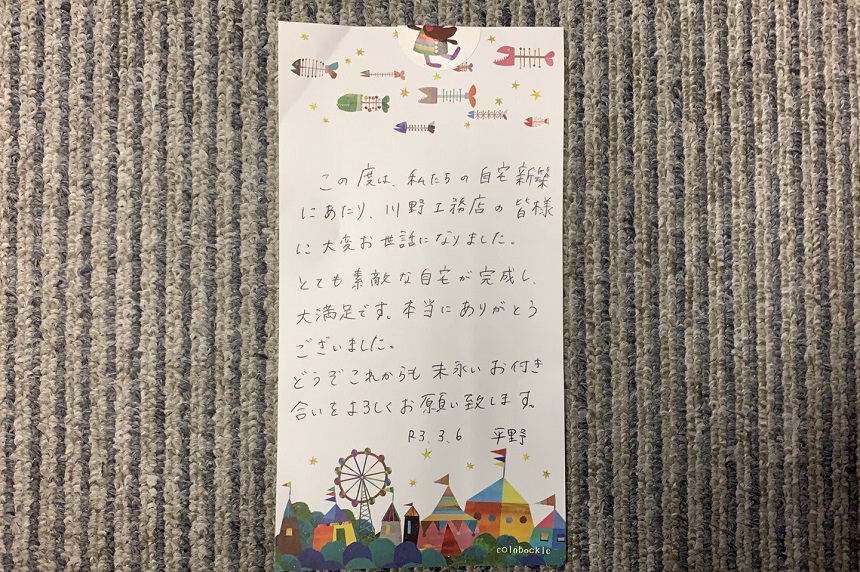 この度は、私たちの自宅新築
にあたり、川野工務店の皆様
に大変お世話になりました。
とても素敵な自宅が完成し、
大満足です。本当にありがとう
ございました。
どうぞこれからも末永いお付き
合いをよろしくお願い致します。
R3.3.6 平野
colobockle